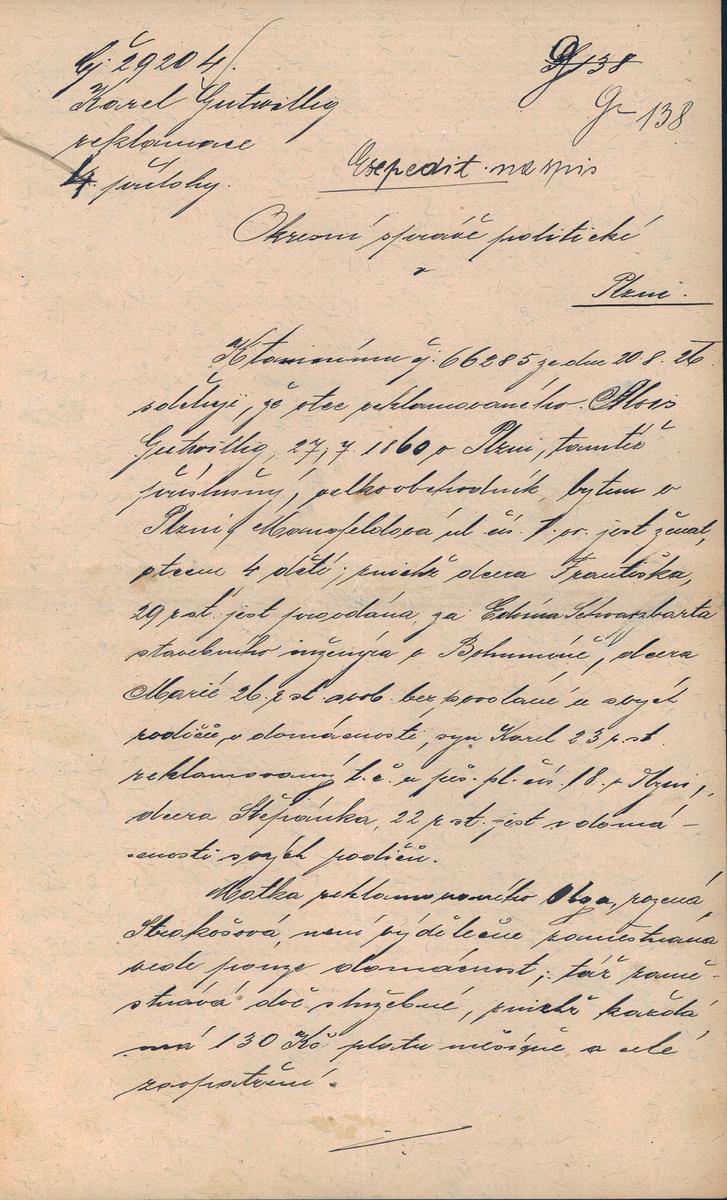 Čj. 29204/.
G 138
Karel Gutwillig
G 138
reklamace
4. přílohy.
Expedit. na spis
Okresní správě politické
v
Plzni.
K tamnímu čj. 66285 ze dne 20.8.26
sděluji, že otec reklamovaného Alois
Gutwillig, 27,7. 1860, v Plzni, tamtéž
příslušný, velkoobchodník bytem v
Plzni, Mansfeldova ul čís. 1. or. jest ženat,
otcem 4 dětí, z nichž dcera Františka,
29 r. st. jest provdána za Edvina Schwarzbarta
stavebního inženýra v Bohumíně, dcera
Marie 26. r. st. svob. bez povolání u svých
rodičů, v domácnosti, syn Karel 23 r. st.
reklamovaný t. č. u pěš. pl. čís. 18. v Plzni,
dcera Štěpánka, 22 r st. jest v domá-
cnosti svých rodičů.
Matka reklamovaného Olga, rozená
Strakošová, není výdělečně zaměstnána
vede pouze domácnost; táž zamě-
stnává dvě služebné, z nichž každá
má 130 Kč platu měsíčně a celé
zaopatření.